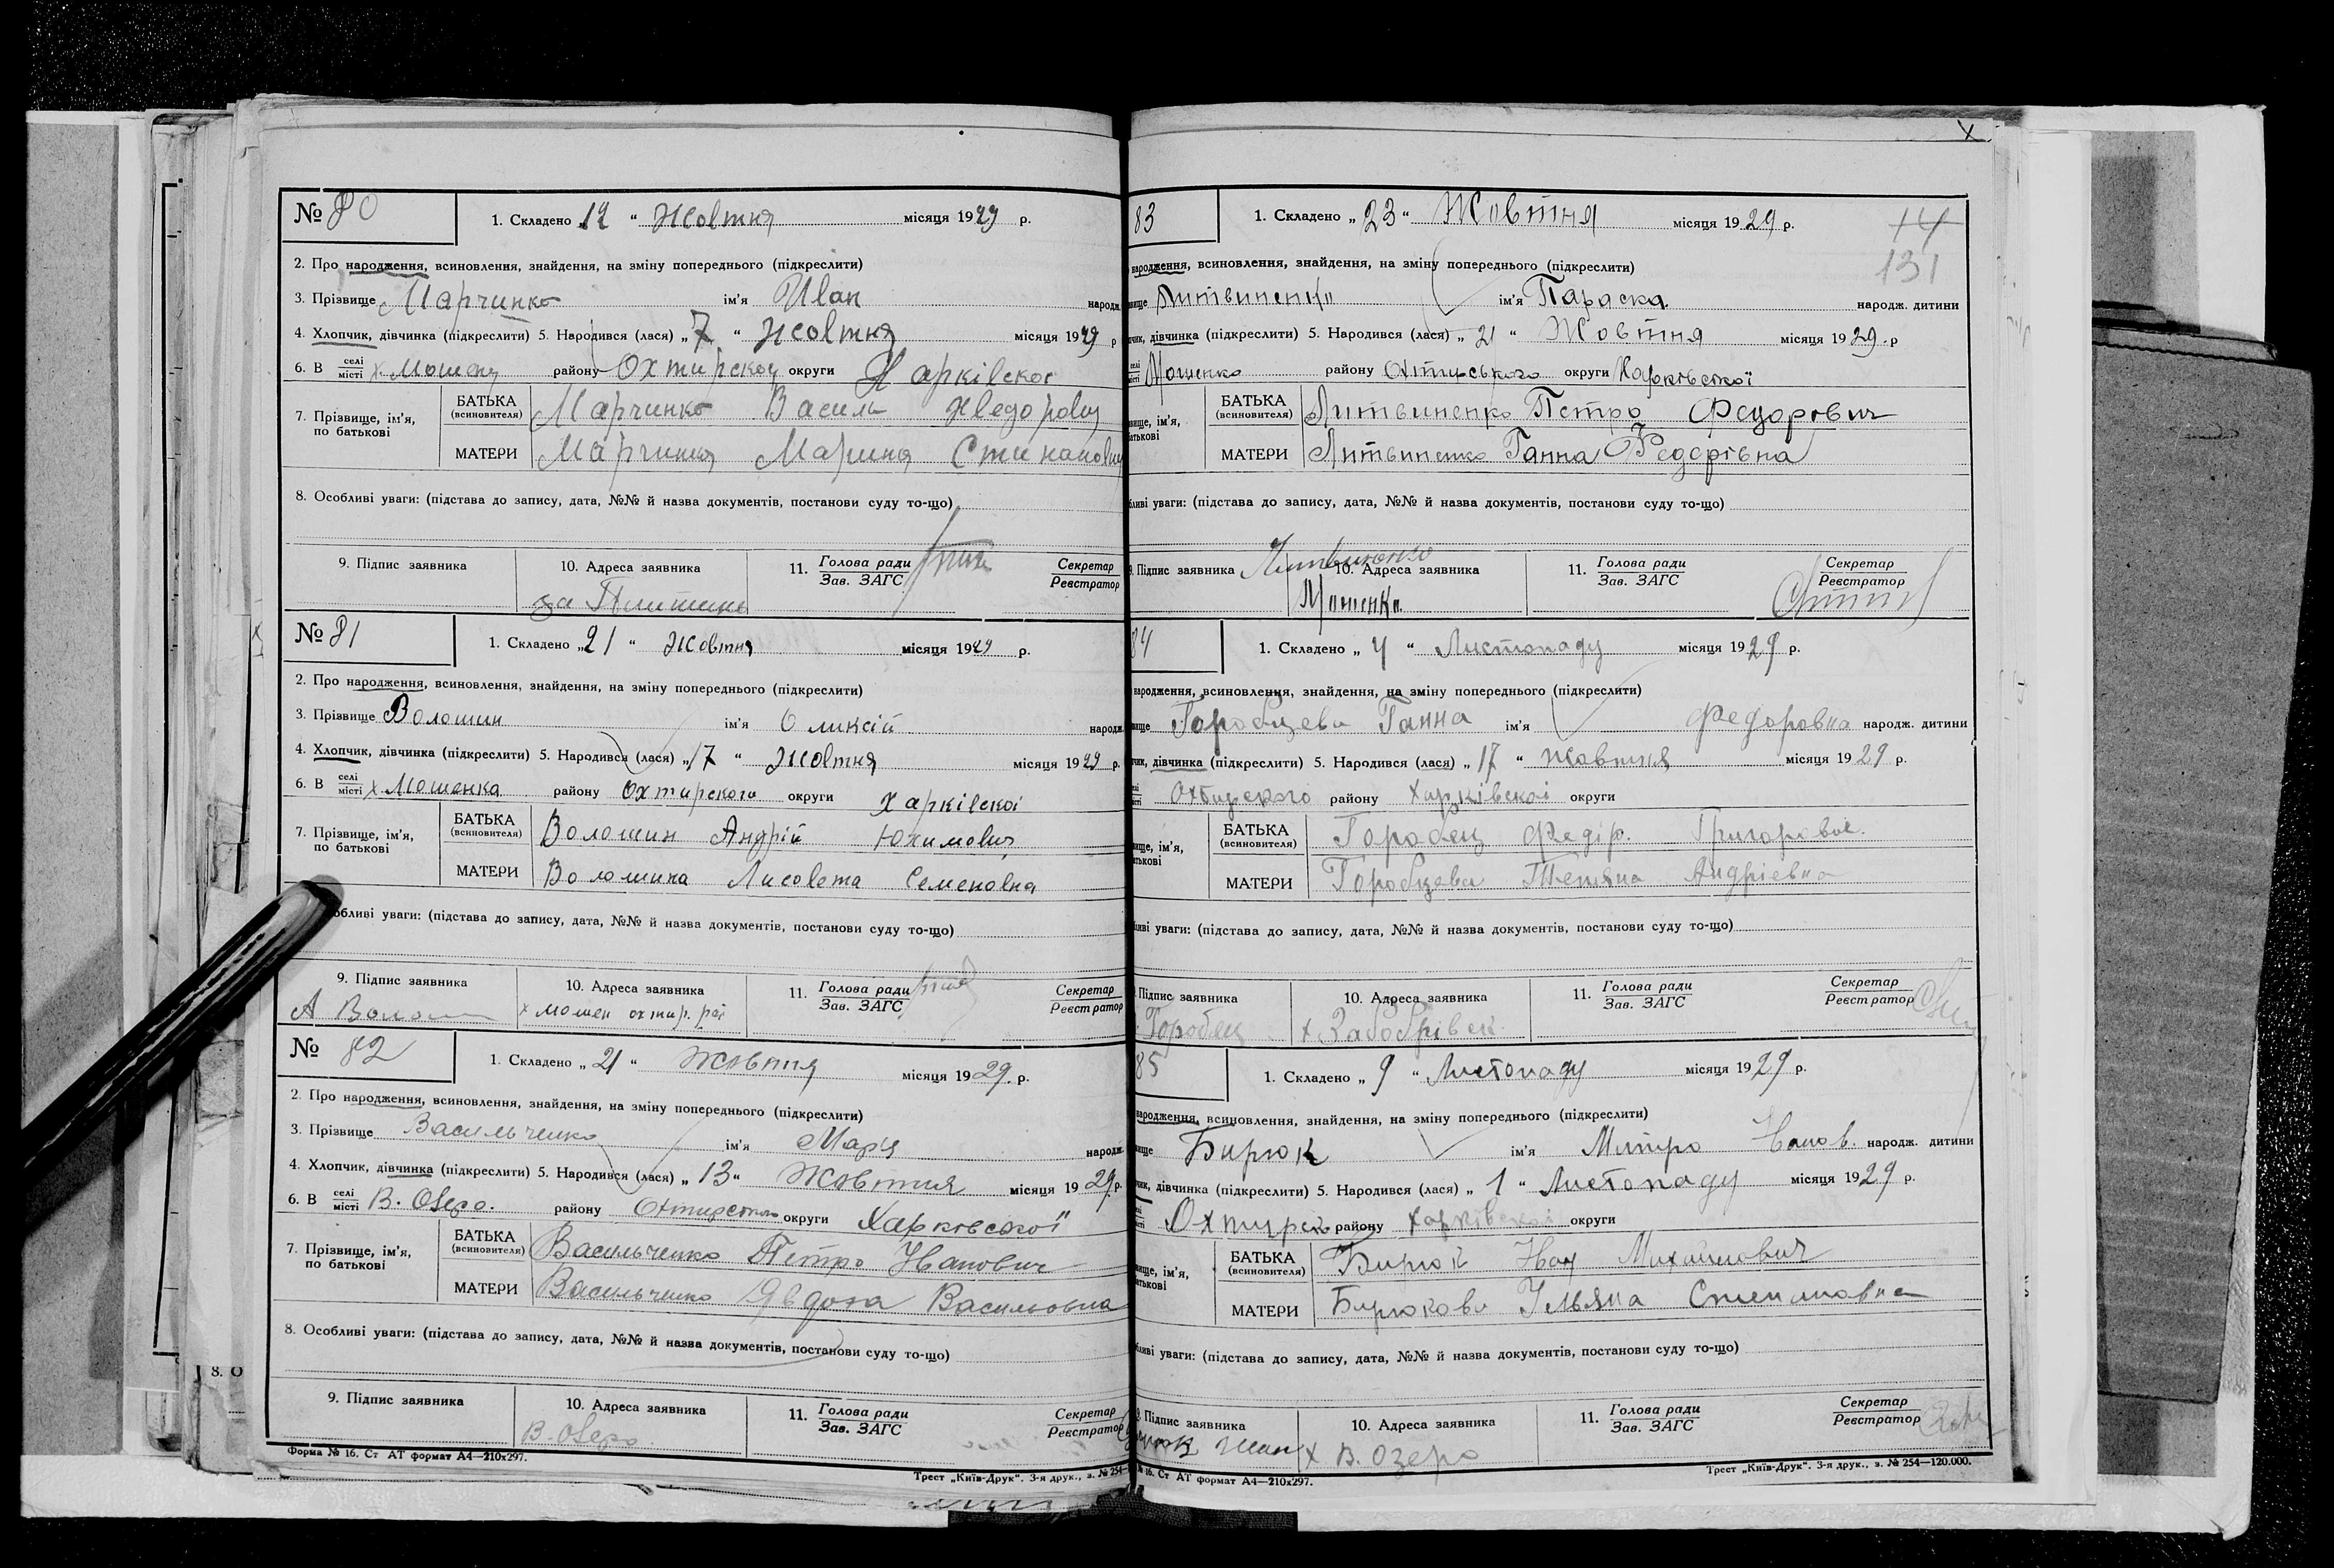 № 80
1. Складено 12 " Жовтня місяця 1929 р.
2. Про народження, всиновлення, знайдення, на зміну попереднього (підкреслити)
3. Прізвище Марчинко ім'я Иван народж
4. Хлопчик, дівчинка (підкреслити) 5. Народився (лася) „ 7 " Жовтня місяця 1929 р
6. В селі місті х Мошенц району Охтирской округи Харківскоі
7. Прізвище, ім'я, по батькові
БАТЬКА (всиновителя) Марчинко Васили Хведорович
МАТЕРИ Марчинка Марина
8. Особливі уваги: (підстава до запису, дата, №№ й назва документів, постанови суду то-що)
9. Підпис заявника 10. Адреса заявника 11. Голова ради Зав. ЗАГС Секретар Реєстратор
№ 81
1. Складено „ 21 " Жовтня місяця 1929 р.
2. Про народження, всиновлення, знайдення, на зміну попереднього (підкреслити)
3. Прізвище Волошин ім'я Оликсій народж
4. Хлопчик, дівчинка (підкреслити) 5. Народився (лася) „ 17 " Жовтня місяця 1929 р.
6. В селі місті х. Мошенка району Охтирского округи Харківскоі
7. Прізвище, ім'я, по батькові
БАТЬКА (всиновителя) Волошин Андрій Юхимович
МАТЕРИ Волошина Лисовета Семеновна
обливі уваги: (підстава до запису, дата, №№ й назва документів, постанови суду то-що)
9. Підпис заявника 10. Адреса заявника 11. Голова ради Зав. ЗАГС Секретар Реєстратор
А Волош х Мошен охтир. рai
№ 82
1. Складено „ 21 " Жовтня місяця 1929. р.
2. Про народження, всиновлення, знайдення, на зміну попереднього (підкреслити)
3. Прізвище Васильченко ім'я Марія народж
4. Хлопчик, дівчинка (підкреслити) 5. Народився (лася) „ 13 " Жовтня місяця 1929 р.
6. В селі місті В. Озеро. району Охтирского округи Харківської
7. Прізвище, ім'я, по батькові
БАТЬКА (всиновителя) Васильченко Петро Иванович
МАТЕРИ Васильченко Явдоха Васильовна
8. Особливі уваги: (підстава до запису, дата, №№ й назва документів, постанови суду то-що)
9. Підпис заявника 10. Адреса заявника 11. Голова ради Зав. ЗАГС Секретар Реєстратор
В. Озеро
Форма № 16. Ст АТ формат А4—210х297.
Трест „Київ-Друк". 3-я друк., з. № 254—
83
1. Складено „ 23 " Жовтня місяця 1929 р.
14
131
народження, всиновлення, знайдення, на зміну попереднього (підкреслити)
вище Литвиненко ім'я Параска. народж. дитини
чик, дівчинка (підкреслити) 5. Народився (лася) „ 21 " Жовтня місяця 1929. р
селі місті Мошенко району Охтирського округи Харківської
вище, ім'я, батькові
БАТЬКА (всиновителя) Литвиненко Петро Федорович
МАТЕРИ Литвиненко Ганна Федорівна
бливі уваги: (підстава до запису, дата, №№ й назва документів, постанови суду то-що)
9. Підпис заявника Литвиненко 10. Адреса заявника 11. Голова ради Зав. ЗАГС Секретар Реєстратор
Мошенка.
84
1. Складено „ 4 " Листопаду місяця 1929 р.
народження, всиновлення, знайдення, на зміну попереднього (підкреслити)
вище Горобцева Ганна ім'я Федоровна народж. дитини
чик, дівчинка (підкреслити) 5. Народився (лася) „ 17 " Жовтня місяця 1929 р.
Охтирского району Харківскоі округи
вище, ім'я, батькові
БАТЬКА (всиновителя) Горобец Федір. Григорович.
МАТЕРИ Горобцева Тетяна Андріевна
ливі уваги: (підстава до запису, дата, №№ й назва документів, постанови суду то-що)
Підпис заявника 10. Адреса заявника 11. Голова ради Зав. ЗАГС Секретар Реєстратор
Горобец
85
1. Складено „ 9 " Листопаду місяця 1929 р.
народження, всиновлення, знайдення, на зміну попереднього (підкреслити)
вище Бирюк ім'я Митро Иванов. народж. дитини
чик, дівчинка (підкреслити) 5. Народився (лася) „ 1 " Листопаду місяця 1929 р.
Охтирск району Харківскоі округи
вище, ім'я, батькові
БАТЬКА (всиновителя) Бирюк Иван Михайлович
МАТЕРИ Бирюкова Ульяна Степановна
бливі уваги: (підстава до запису, дата, №№ й назва документів, постанови суду то-що)
9. Підпис заявника 10. Адреса заявника 11. Голова ради Зав. ЗАГС Секретар Реєстратор
х В. Озеро
№ 16. Ст АТ формат А4—210х297.
Трест „Київ-Друк". 3-я друк., з. № 254—120.000.